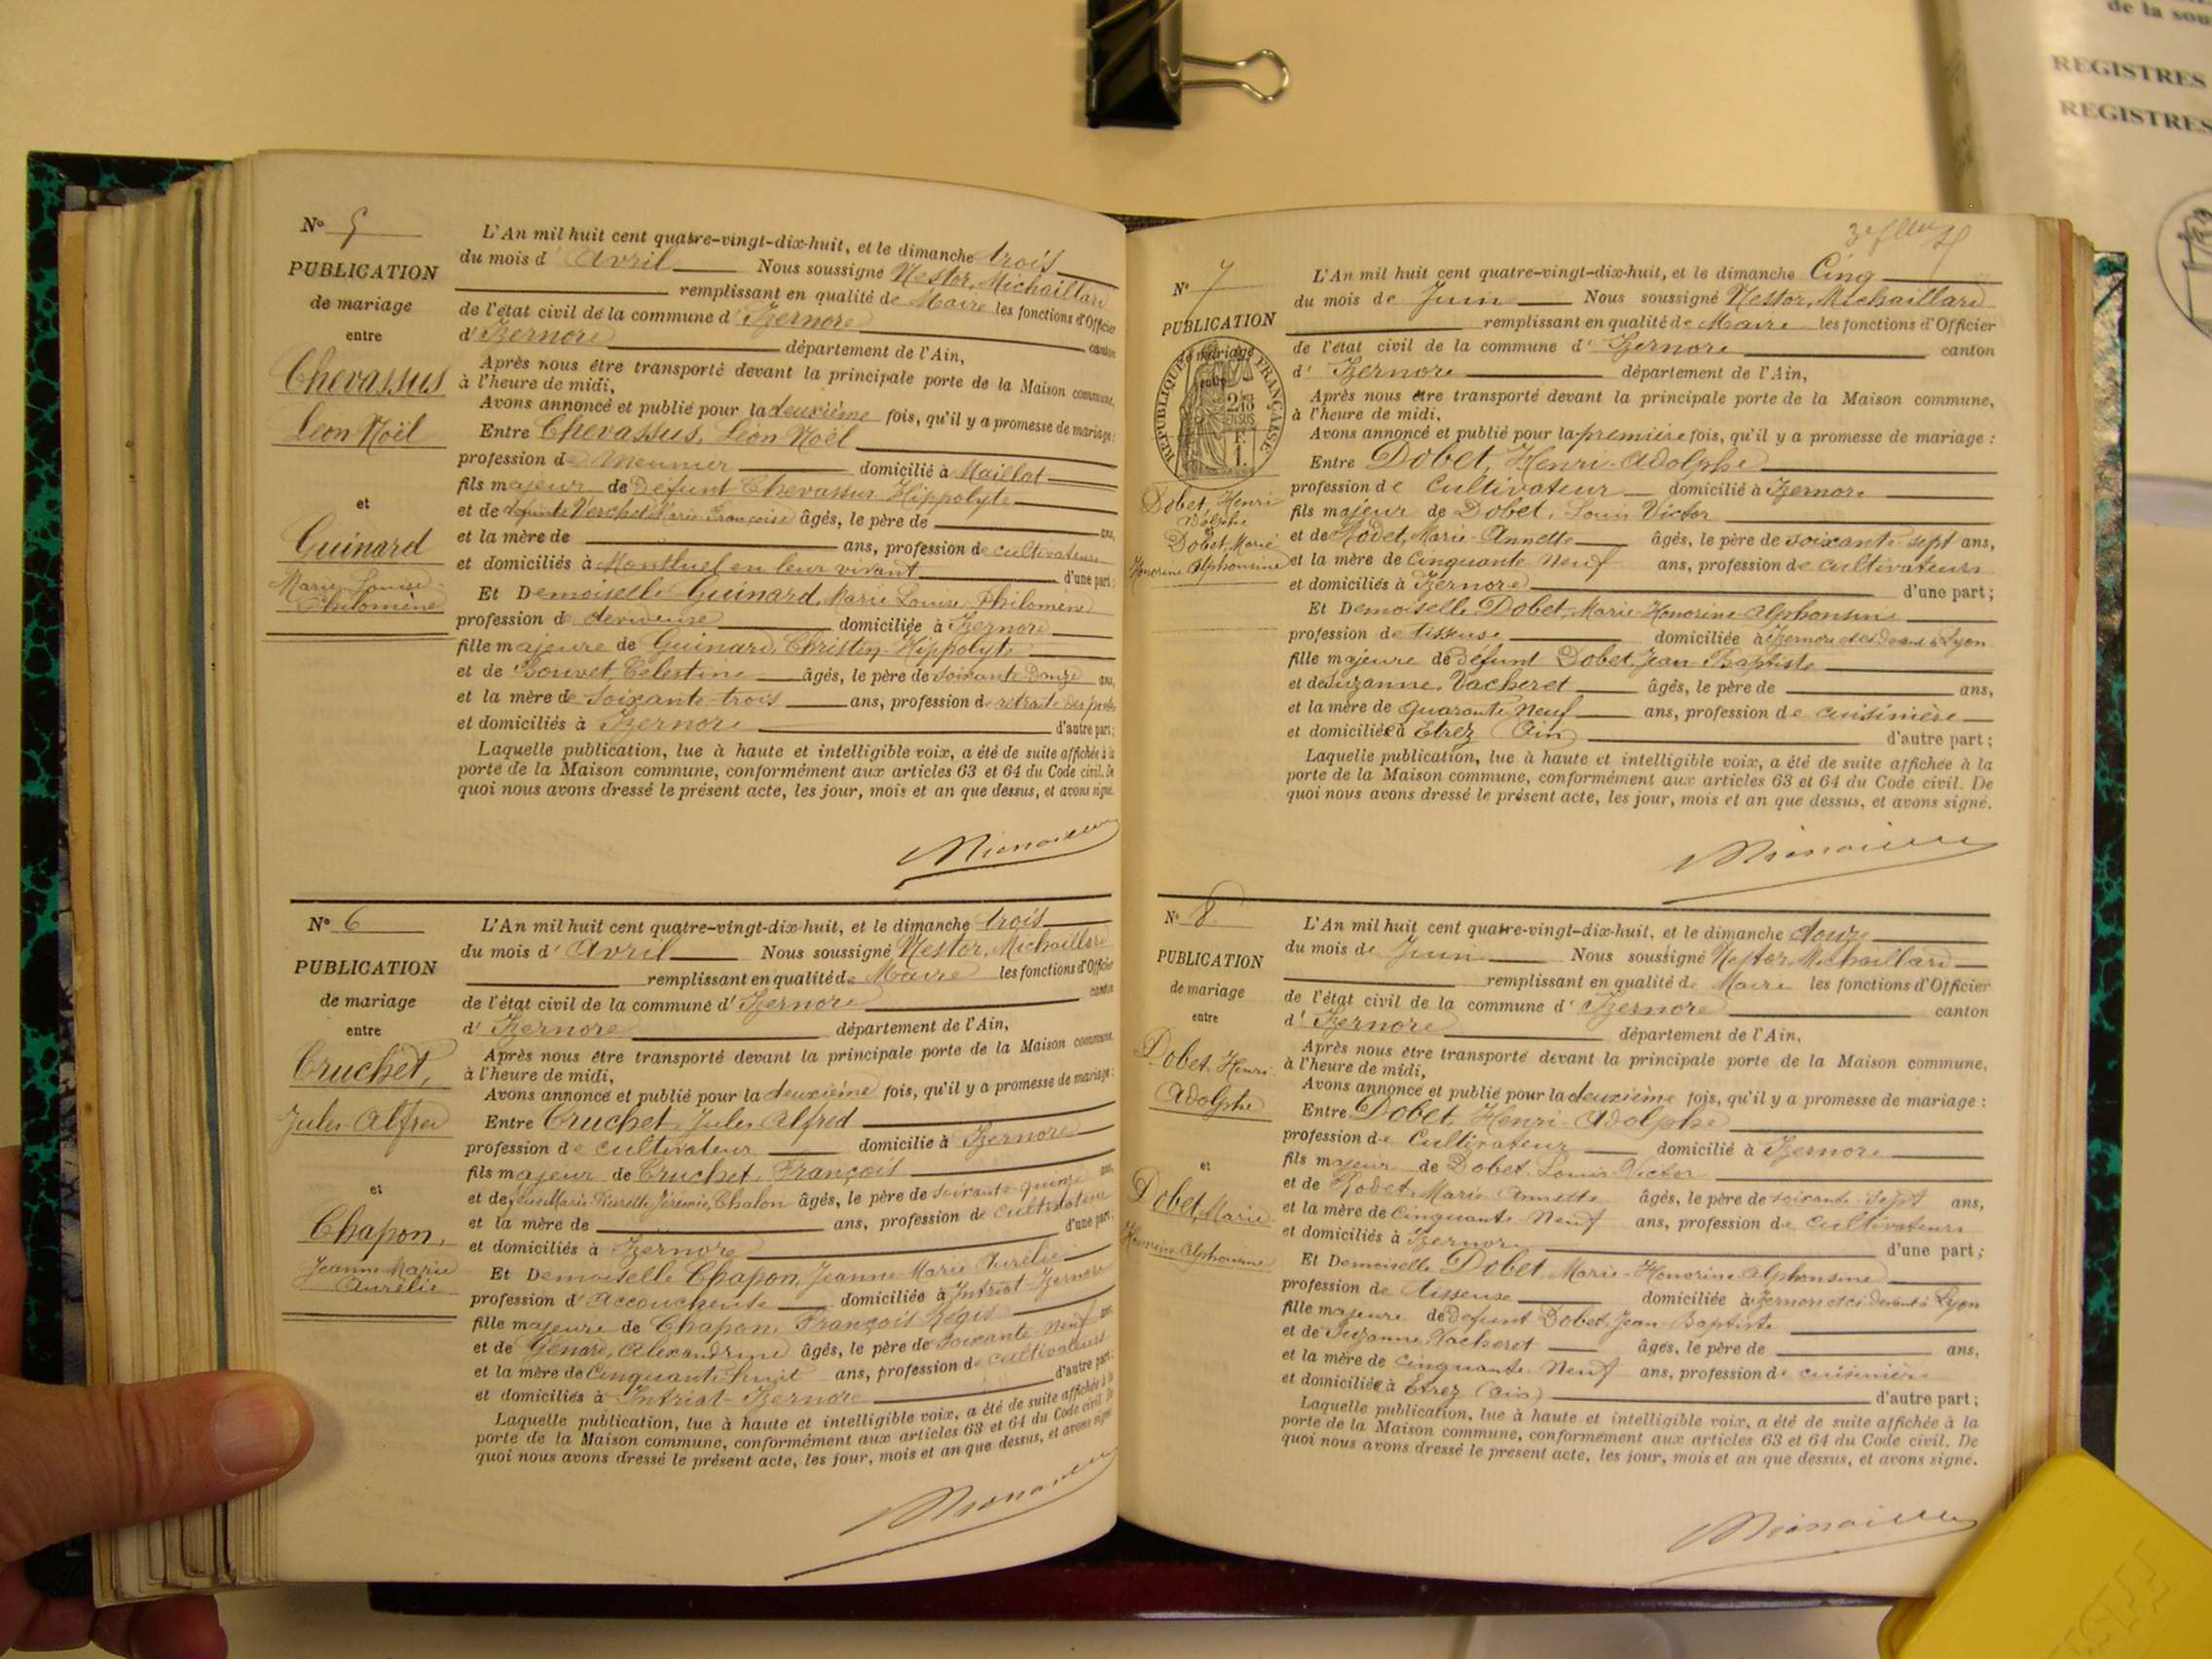 N° 5
PUBLICATION
de mariage
entre
Chevassus
Léon Noël
et
Guinard
Marie Louise
Philomène
L'An mil huit cent quatre-vingt-dix-huit, et le dimanche trois
du mois d' Avril Nous soussigné Nestor, Michaillard
remplissant en qualité de Maire les fonctions d'Officier
de l'état civil de la commune d' Izernore
d' Izernore département de l'Ain, canton
Après nous être transporté devant la principale porte de la Maison commune,
à l'heure de midi,
Avons annoncé et publié pour la deuxième fois, qu'il y a promesse de mariage :
Entre Chevassus, Léon Noël
profession de Meunier domicilié à Maillat
fils majeur de Défunt Chevassus Hippolyte
et de défunte Verchet Marie Françoise âgés, le père de ans,
et la mère de ans, profession de cultivateurs
et domiciliés à Montluel en leur vivant d'une part ;
Et Demoiselle Guinard, Marie Louise Philomène
profession de domiciliée à Izernore
fille majeure de Guinard, Christin Hippolyte
et de Bouvet Célestine âgés, le père de soixante Douze ans,
et la mère de soixante-trois ans, profession de retraité des postes
et domiciliés à Izernore d'autre part ;
Laquelle publication, lue à haute et intelligible voix, a été de suite affichée à la
porte de la Maison commune, conformément aux articles 63 et 64 du Code civil. De
quoi nous avons dressé le présent acte, les jour, mois et an que dessus, et avons signé.
N° 6
PUBLICATION
de mariage
entre
Cruchet,
Jules Alfred
et
Chapon,
Jeanne Marie
Aurélie
L'An mil huit cent quatre-vingt-dix-huit, et le dimanche trois
du mois d' Avril Nous soussigné Nestor, Michaillard
remplissant en qualité de Maire les fonctions d'Officier
de l'état civil de la commune d' Izernore canton
d' Izernore département de l'Ain,
Après nous être transporté devant la principale porte de la Maison commune,
à l'heure de midi,
Avons annoncé et publié pour la deuxième fois, qu'il y a promesse de mariage :
Entre Cruchet, Jules Alfred
profession de cultivateur domicilié à Izernore
fils majeur de Cruchet, François
et de feue Marie Pierrette Jérémie, Chalon âgés, le père de soixante-quinze ans,
et la mère de ans, profession de cultivateur
et domiciliés à Izernore d'une part,
Et Demoiselle Chapon, Jeanne Marie Aurélie
profession d' accoucheuse domiciliée à Intriat-Izernore
fille majeure de Chapon, François Régis
et de Génard, Alexandrine âgés, le père de soixante neuf ans,
et la mère de Cinquante huit ans, profession de cultivateurs
et domiciliés à Intriat-Izernore d'autre part ;
Laquelle publication, lue à haute et intelligible voix, a été de suite affichée à la
porte de la Maison commune, conformément aux articles 63 et 64 du Code civil. De
quoi nous avons dressé le présent acte, les jour, mois et an que dessus, et avons signé
N° 7
PUBLICATION
de mariage
entre
RÉPUBLIQUE FRANÇAISE
Dobet, Henri
Adolphe
et
Dobet, Marie
Honorine Alphonsine
L'An mil huit cent quatre-vingt-dix-huit, et le dimanche Cinq
du mois de Juin Nous soussigné Nestor, Michaillard
remplissant en qualité de Maire les fonctions d'Officier
de l'état civil de la commune d' Izernore canton
d' Izernore département de l'Ain,
Après nous être transporté devant la principale porte de la Maison commune,
à l'heure de midi,
Avons annoncé et publié pour la première fois, qu'il y a promesse de mariage :
Entre Dobet, Henri-Adolphe
profession de Cultivateur domicilié à Izernore
fils majeur de Dobet, Louis Victor
et de Rodet, Marie-Annette âgés, le père de soixante-sept ans,
et la mère de Cinquante Neuf ans, profession de cultivateurs
et domiciliés à Izernore d'une part ;
Et Demoiselle Dobet, Marie-Honorine Alphonsine
profession de tisseuse domiciliée à Izernore et ci Devant à Lyon
fille majeure de défunt Dobet, Jean-Baptiste
et de Suzanne, Vacheret âgés, le père de ans,
et la mère de quarante Neuf ans, profession de cuisinière
et domiciliée à Etrez (Ain) d'autre part ;
Laquelle publication, lue à haute et intelligible voix, a été de suite affichée à la
porte de la Maison commune, conformément aux articles 63 et 64 du Code civil. De
quoi nous avons dressé le présent acte, les jour, mois et an que dessus, et avons signé.
N° 8
PUBLICATION
de mariage
entre
Dobet, Henri
Adolphe
et
Dobet, Marie
Honorine Alphonsine
L'An mil huit cent quatre-vingt-dix-huit, et le dimanche douze
du mois de Juin Nous soussigné Nestor, Michaillard
remplissant en qualité de Maire les fonctions d'Officier
de l'état civil de la commune d' Izernore canton
d' Izernore département de l'Ain,
Après nous être transporté devant la principale porte de la Maison commune,
à l'heure de midi,
Avons annoncé et publié pour la deuxième fois, qu'il y a promesse de mariage :
Entre Dobet, Henri-Adolphe
profession de Cultivateur domicilié à Izernore
fils majeur de Dobet, Louis Victor
et de Rodet, Marie Annette âgés, le père de soixante-sept ans,
et la mère de Cinquante Neuf ans, profession de cultivateurs
et domiciliés à Izernore d'une part ;
Et Demoiselle Dobet, Marie-Honorine Alphonsine
profession de tisseuse domiciliée à Izernore et ci Devant à Lyon
fille majeure de Défunt Dobet Jean-Baptiste
et de Suzanne, Vacheret âgés, le père de ans,
et la mère de Cinquante Neuf ans, profession de cuisinière
et domiciliée à Etrez (Ain) d'autre part ;
Laquelle publication, lue à haute et intelligible voix, a été de suite affichée à la
porte de la Maison commune, conformément aux articles 63 et 64 du Code civil. De
quoi nous avons dressé le présent acte, les jour, mois et an que dessus, et avons signé.
de la sou
REGISTRES
REGISTRES